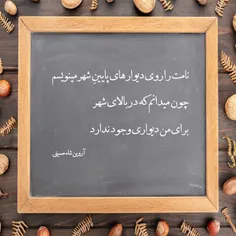 نامت را روی دیوارهای پایین شهر مینویسم
چون میدانم که در بالای شهر
برای من دیواری وجود ندارد
آروین شاه حسینی